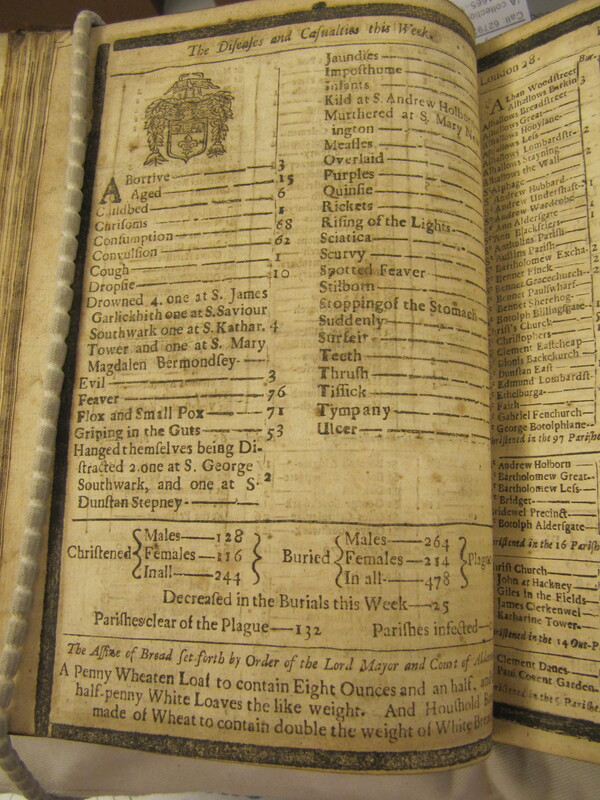 The Diſeaſes and Caſualties this Week.
ABortive 3
Aged 15
Childbed 6
Chriſoms 1
Conſumption 68
Convulſion 62
Cough 1
Dropſie 10
Drowned 4. one at S. James
Garlickhith one at S. Saviour
Southwark one at S. Kathar. 4
Tower and one at S. Mary
Magdalen Bermondſey
Evil 3
Feaver 76
Flox and Small Pox 71
Griping in the Guts 53
Hanged themſelves being Di-
ſtracted 2. one at S. George
Southwark, and one at S. 2
Dunſtan Stepney
Jaundies
Impoſthume
Infants
Kild at S. Andrew Holborn
Murthered at S. Mary
ington
Meaſles
Overlaid
Purples
Quinſie
Rickets
Riſing of the Lights
Sciatica
Scurvy
Spotted Feaver
Stilborn
Stopping of the Stomach
Suddenly
Surfeit
Teeth
Thruſh
Tiſſick
Tympany
Ulcer
Chriſtened
Males 128
Females 116
In all 244
Buried
Males 264
Females 214
In all 478
Plague
Decreaſed in the Burials this Week 25
Pariſhes clear of the Plague 132 Pariſhes infected
The Aſſize of Bread ſet forth by Order of the Lord Mayor and Court of
A Penny Wheaten Loaf to contain Eight Ounces and an half, and
half-penny White Loaves the like weight. And Houſhold
made of Wheat to contain double the weight of White
London 28.
Alban Woodſtreet
Alhallows Barkin
Alhallows Breadſtreet
Alhallows Great
Alhallows Honylane
Alhallows Leſs
Alhallows Lombardſtr
Alhallows Stayning
Alhallows the Wall
Alphage
Andrew Hubbard
Andrew Underſhaft
Andrew Wardrobe
Ann Alderſgate
Ann Blackfriers
Antholins Pariſh
Auſtins Pariſh
Bartholomew Excha.
Bennet Finck
Bennet Gracechurch
Bennet Paulſwharf
Bennet Sherehog
Botolph Billingſgate
Chriſt's Church
Chriſtophers
Clement Eaſtcheap
Dionis Backchurch
Dunſtan Eaſt
Edmund Lombardſt
Ethelburga
Faith
Gabriel Fenchurch
George Botolphlane
in the 97 Pariſhes
Andrew Holborn
Bartholomew Great
Bartholomew Leſs
Bridget
Bridewel Precinct
Botolph Alderſgate
in the 16 Pariſh
Chriſt Church
John at Hackney
Giles in the Fields
James Clerkenwel
Katharine Tower
in the 14 Out-P
Clement Danes
Paul Covent Garden
in the 5 Pariſhe